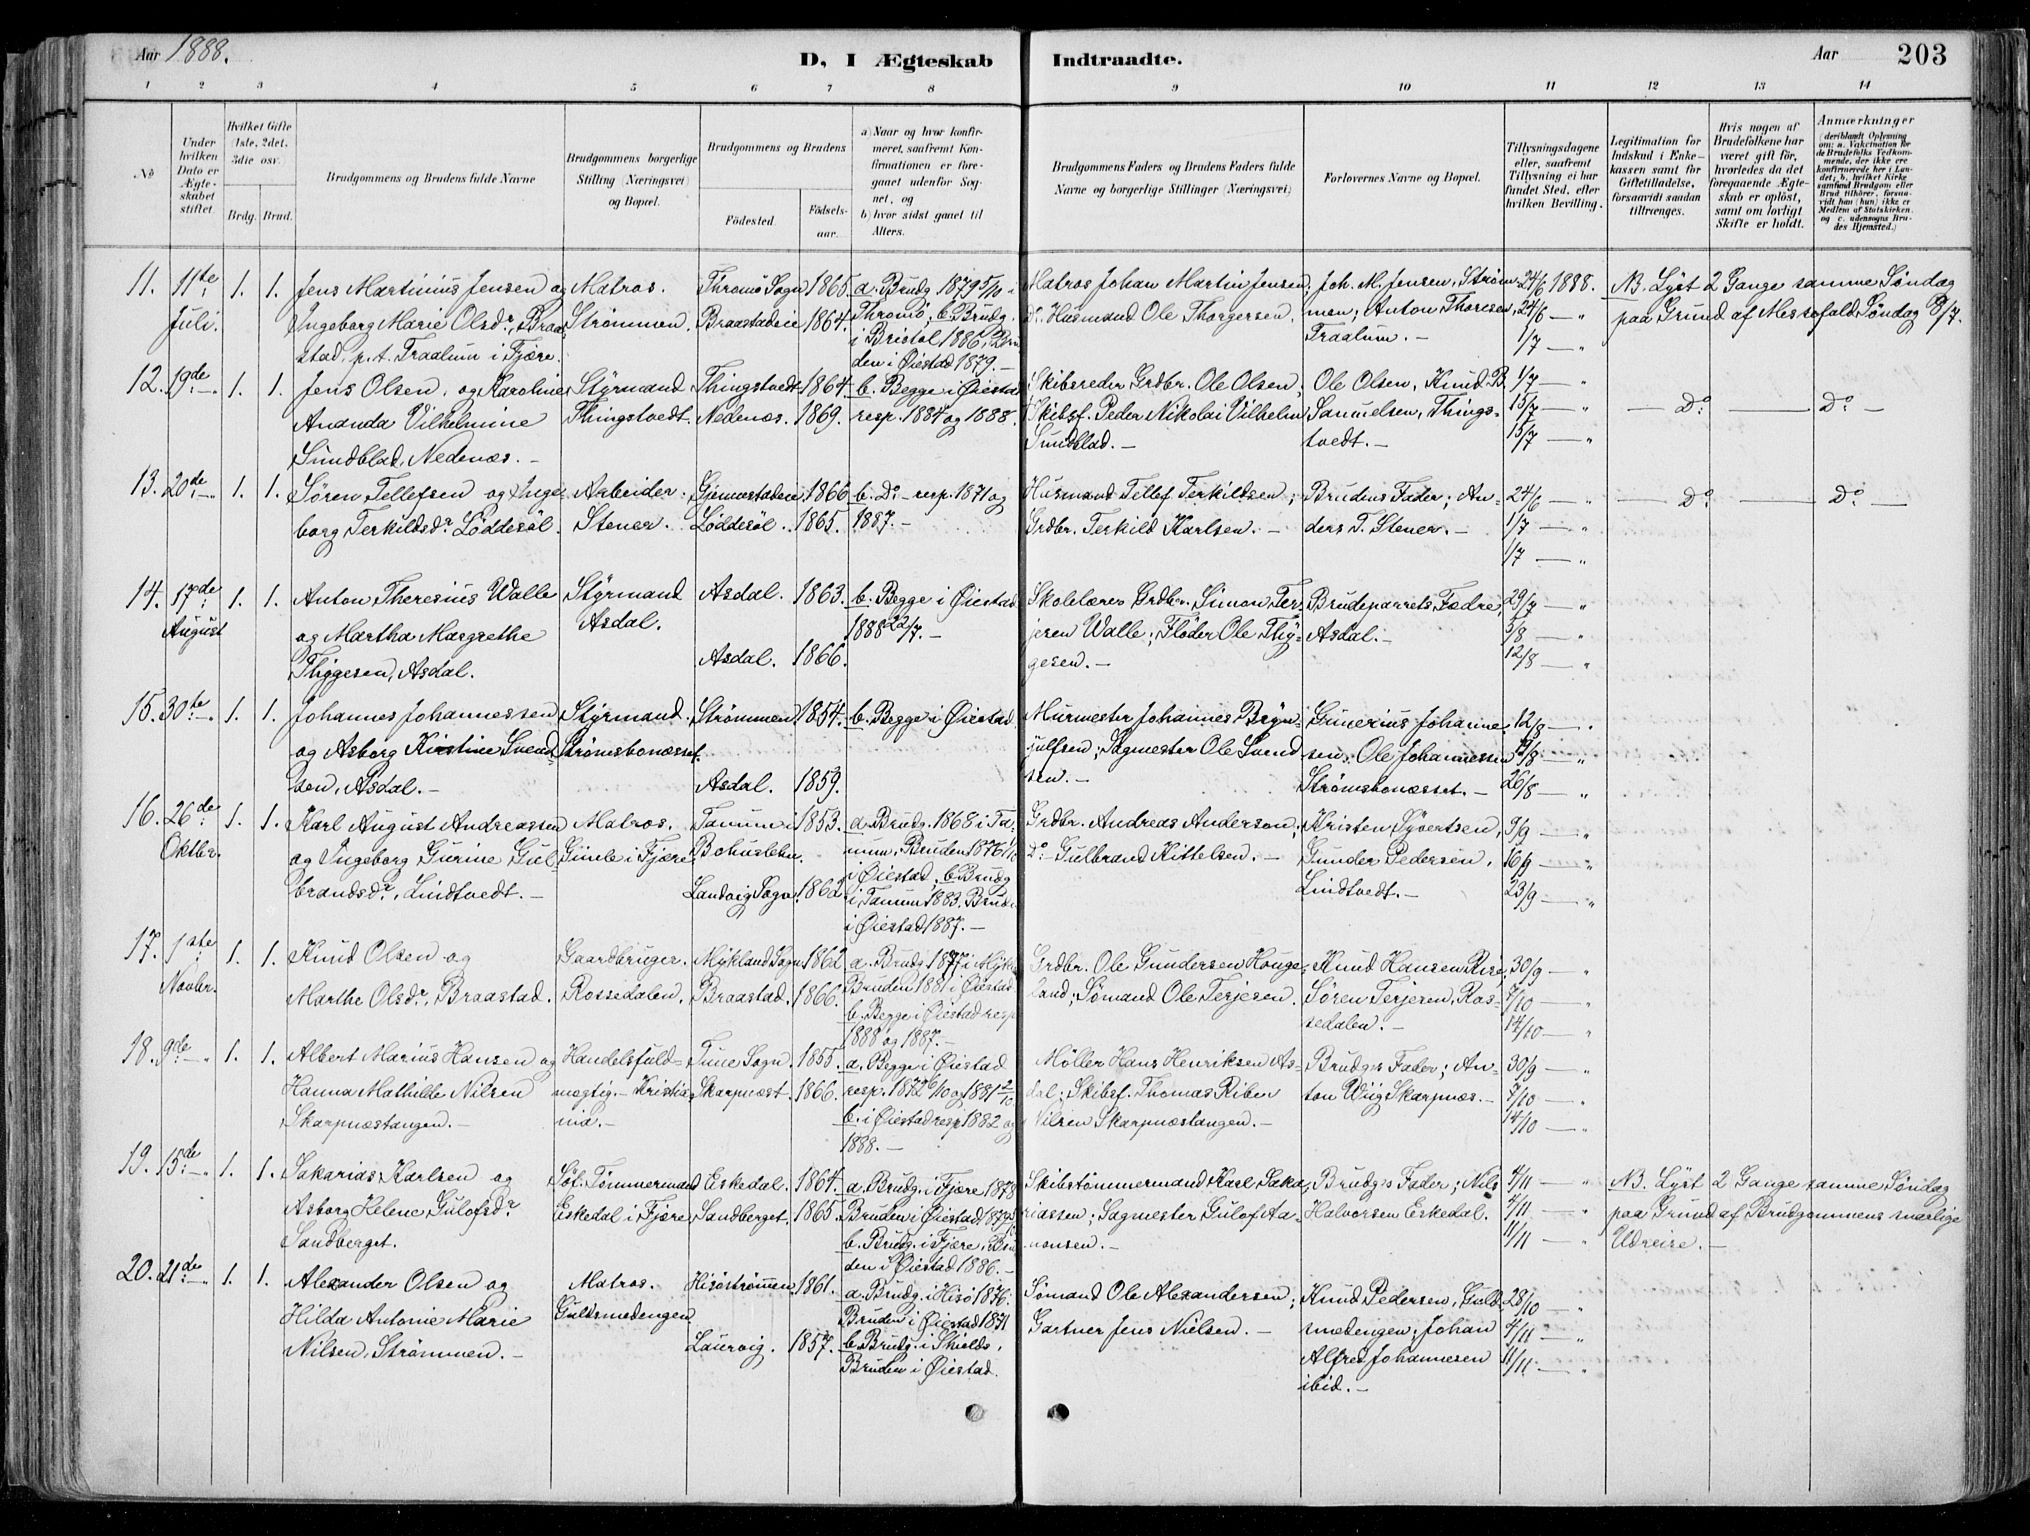 Aar 1888.
D, I Ægteskab
Indtraadte.
Aar 203
1 2 3 4 5 6 7 8 9 10 11 12 13 14
No
Under hvilken Dato er Ægteskabet stiftet.
Hvilket Gifte (1ste, 2det, 3die osv.
Brdg. Brud.
Brudgommens og Brudens fulde Navne
Brudgommens borgerlige Stilling (Næringsvei) og Bopæl.
Brudgommens og Brudens
Fødested. Fødselsaar.
a) Naar og hvor konfirmeret, saafremt Konfirmationen er foregaaet udenfor Sognet, og
b) hvor sidst gaaet til Alters.
Brudgommens Faders og Brudens Faders fulde Navne og borgerlige Stillinger (Næringsvei)
Forlovernes Navne og Bopæl.
Tillysningsdagene eller, saafremt Tillysning ei har fundet Sted, efter hvilken Bevilling.
Legitimation for Indskud i Enkekassen samt for Giftetilladelse, forsaavidt saadan tiltrenges.
Hvis nogen af Brudefolkene har været gift før, hvorledes da det foregaaende Ægteskab er opløst, samt om lovligt Skifte er holdt.
Anmærkninger (deriblandt Oplysning om: a. Vakcination for de Brudefolks Vedkommende, der ikke ere konfirmerede her i Landet; b. hvilket Kirke samfund Brudgom eller Brud tilhører, forsaavidt han (hun) ikke er Medlem af Statskirken. og c. udensogns Brudes Hjemsted.)
11. 11te Juli. 1. 1.
Jens Martinius Jensen og
Ingeborg Marie Olsdr, Braa
stad, p.t. Fraalum i Fjære.
Matros.
Strømmen.
Thromø Sogn 1865
Braastadeie 1864.
a. Brudg. 1879 5/10 i
Thromø; b. Brudg.
i Bristol 1886, Bru
den i Øiestad 1879.-
Matros Johan Martin Jensen,
Do. Husmand Ole Thorgersen.
Joh. M. Jensen, Strøm
men; Anton Thoresen,
Fraalum.-
24/6 1888.
24/6 — "
1/7 — "
NB. Lyst 2 Gange samme Søndag
paa Grund af Messefald Søndag 8/7.
12. 19de — 1. 1.
Jens Olsen, og Karoline
Ananda Vilhelmine
Sundblad, Nedenæs.-
Styrmand
Thingstvedt.
Thingstvedt. 1864.
Nedenæs. 1869.
b. Begge i Øiestad
resp. 1884 og 1888.
Skibsreder Grdbr. Ole Olsen,
Skibsf. Peder Nikolai Vilhelm
Sundblad.-
Ole Olsen, Knud B.
Samuelsen, Things-
tvedt.-
1/7 — "
15/7 — "
15/7 — "
— Do. — Do. —
13. 20de — 1. 1.
Søren Tellefsen og Inge
borg Terkildsdr. Løddesøl.
Arbeider.
Stener.
Gjennestadeie 1866
Løddesøl. 1865.
b. Do - resp. 1871 og
1887.-
Husmand Tellef Terkildsen;
Grdbr. Terkild Karlsen.-
Brudens Fader; An-
ders T. Stener.-
24/6 — "
1/7 — "
1/7 — "
— Do. — Do —
14. 17de August 1. 1.
Anton Theresius Walle
og Martha Margrethe
Thygesen, Asdal.
Styrmand
Asdal.
Asdal. 1863.
Asdal. 1866.
b. Begge i Øiestad
1888 22/7.-
Skolelærer Grdbr. Simon Ter-
jesen Walle; Fløder Ole Thy-
gesen.-
Brudeparrets Fædre,
Asdal.-
29/7 — "
5/8 — "
12/8 — "
15. 30te — 1. 1.
Johannes Johannessen
og Asborg Kirstine Svend
sen, Asdal.-
Styrmand.
Strømsbonæsset.
Strømmen. 1854.
Asdal. 1859.
b. Begge i Øiestad
Murmester Johannes Bryn-
julfsen; Sagmester Ole Svend
sen.-
Grunerius Johanne
sen; Ole Johannessen
Strømsbonæsset.-
12/8 — "
19/8 — "
26/8 — "
16. 26de Oktbr. 1. 1.
Karl August Andreassen
og Ingeborg Gurine Gul
brandsdr, Lindtvedt.-
Matros.
Gimle i Fjære
Tanum i 1853.
Bohuslehn.
Landvig Sogn. 1862.
a. Brudg. 1868 i Ta-
num, Bruden 1876 1/10
i Øiestad; b. Brudg
i Tanum 1883. Brude
i Øiestad 1887.-
Grdbr. Andreas Anderson;
Do. Gulbrand Kittelsen.-
Kristen Syvertsen,
Gunder Pedersen,
Lindtvedt.-
9/9 — "
16/9 — "
23/9 — "
17. 1ste Novbr. 1. 1.
Knud Olsen og
Marthe Olsdr, Braastad.
Gaardbruger.
Rossedalen.
Mykland Sogn 1862
Braastad. 1866.
a. Brudg. 1877 i Mykl
Bruden 1881 i Øiestad
b. Begge i Øiestad resp
1888 og 1887.-
Grdbr. Ole Gundersen Houge
land; Sømand Ole Terjesen.
Knud Hansen Rise,
Søren Terjesen, Ros-
sedalen.-
30/9 — "
7/10 — "
14/10 — "
18. 9de — 1. 1.
Albert Marius Hansen og
Hanna Mathilde Nilsen
Skarpnæstangen.-
Handelsfuld-
mægtig.- Kristia
nia.-
Tune Sogn. 1855.
Skarpnæst. 1866.
a. Begge i Øiestad
resp. 1872 6/10 og 1881 2/10
b. i Øiestad resp 1882 og
1888.-
Møller Hans Henriksen As-
dal; Skibsf. Thomas Riber
Nilsen Skarpnæstangen.-
Brudgs Fader; An-
ton Wiig Skarpnæs.-
30/9 — "
7/10 — "
14/10 — "
19. 15de — 1. 1.
Sakarias Karlsen og
Asborg Helene Gulofsdr.
Sandberget.
Søf. Tømmermand
Eskedal i Fjære
Eskedal. 1864.
Sandberget. 1865.
a. Brudg. i Fjære 1878
Bruden i Øiestad 1879
b. Brudg. i Fjære, Bru
den i Øiestad 1886.-
Skibstømmermand Karl Saka
riassen; Sagmester Gulof Aa-
nonsen.-
Brudgs Fader; Nils
Halvorsen Eskedal.
4/11 — "
4/11 — "
11/11 — "
NB. Lyst 2 Gange samme Søndag
paa Grund af Brudgommens snarlige
Udreise.-
20. 21de — 1. 1.
Alexander Olsen og
Hilda Antonie Marie
Nilsen, Strømmen.-
Matros.
Guldsmedengen
Hisøstrømmen. 1861.
Laurvig. 1857.
a. Brudg. i Hisø 1876.
Bruden i Øiestad 1871
b. Brudg. i Shields,
Bruden i Øiestad.
Sømand Ole Alexandersen;
Gartner Jens Nielsen.-
Knud Pedersen, Guld-
smedengen; Johan
Alfred Johannesen
ibid.-
28/10 — "
4/11 — "
11/11 — "